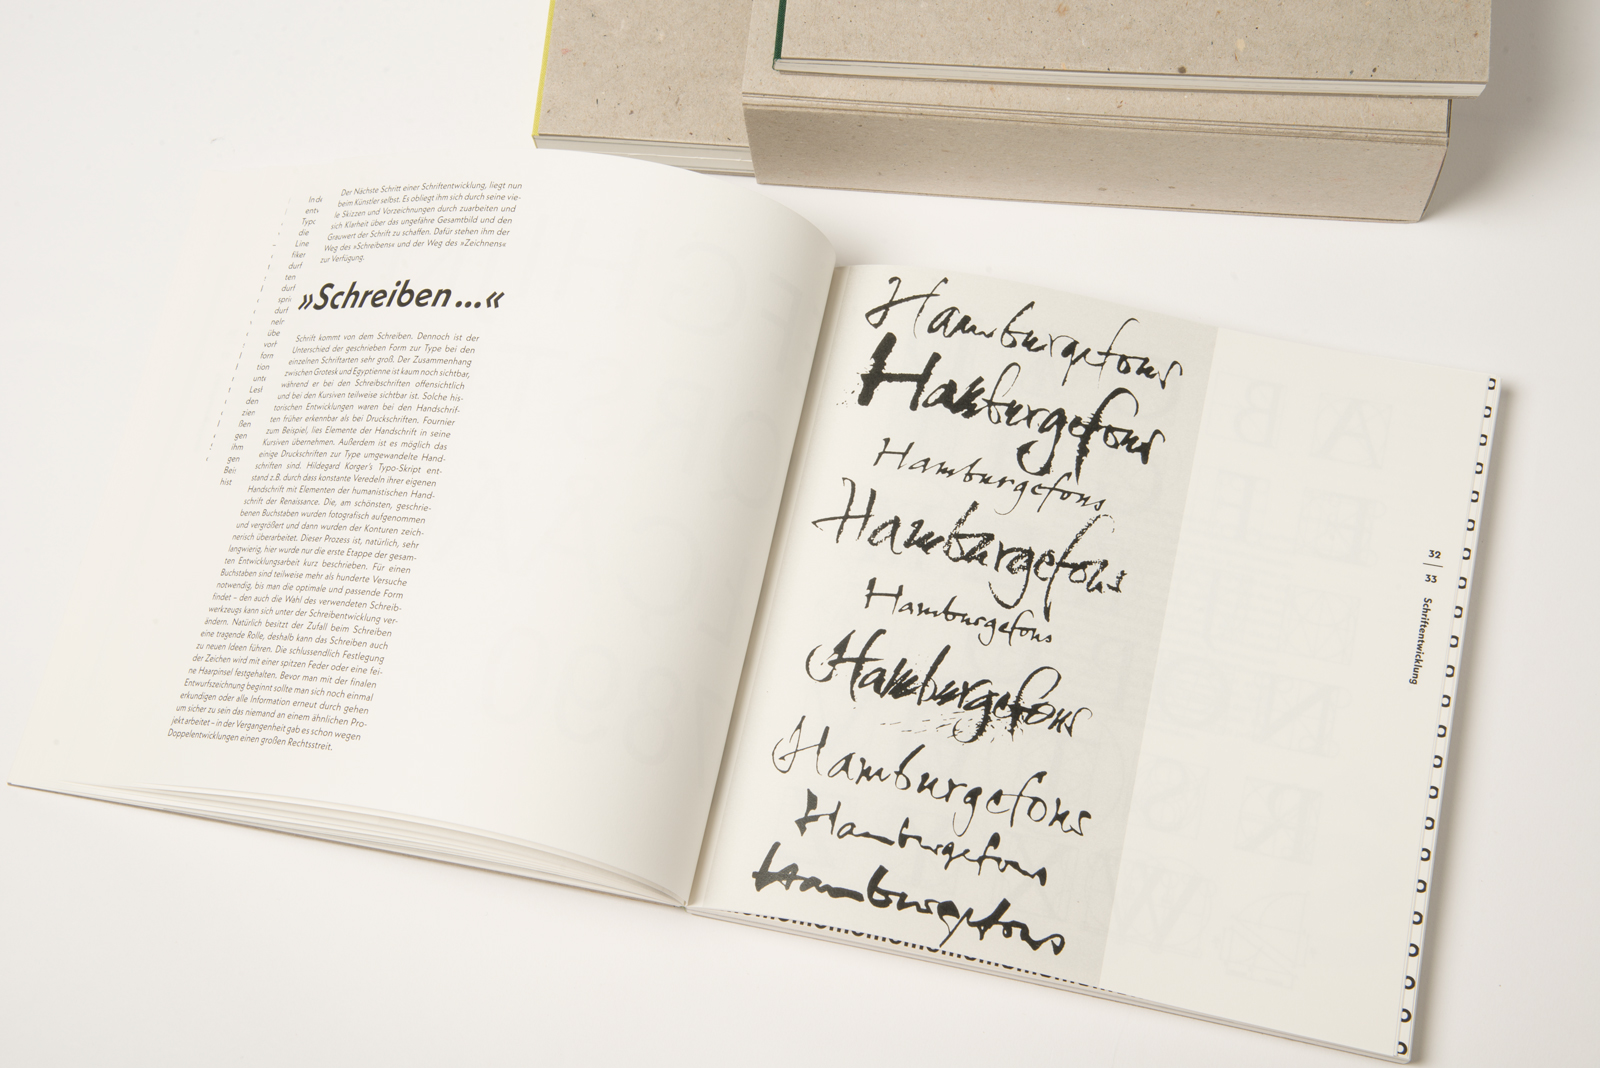 Der Nächste Schritt einer Schriftentwicklung, liegt nun
beim Künstler selbst. Es obliegt ihm sich durch seine vie-
le Skizzen und Vorzeichnungen durch zuarbeiten und
sich Klarheit über das ungefähre Gesamtbild und den
Grauwert der Schrift zu schaffen. Dafür stehen ihm der
Weg des »Schreibens« und der Weg des »Zeichnens«
zur Verfügung.
»Schreiben ...«
Schrift kommt von dem Schreiben. Dennoch ist der
Unterschied der geschrieben Form zur Type bei den
einzelnen Schriftarten sehr groß. Der Zusammenhang
zwischen Grotesk und Egyptienne ist kaum noch sichtbar,
während er bei den Schreibschriften offensichtlich
und bei den Kursiven teilweise sichtbar ist. Solche his-
torischen Entwicklungen waren bei den Handschrif-
ten früher erkennbar als bei Druckschriften. Fournier
zum Beispiel, lies Elemente der Handschrift in seine
Kursiven übernehmen. Außerdem ist es möglich das
einige Druckschriften zur Type umgewandelte Hand-
schriften sind. Hildegard Korger's Typo-Skript ent-
stand z.B. durch das konstante Veredeln ihrer eigenen
Handschrift mit Elementen der humanistischen Hand-
schrift der Renaissance. Die, am schönsten, geschrie-
benen Buchstaben wurden fotografisch aufgenommen
und vergrößert und dann wurden der Konturen zeich-
nerisch überarbeitet. Dieser Prozess ist, natürlich, sehr
langwierig, hier wurde nur die erste Etappe der gesam-
ten Entwicklungsarbeit kurz beschrieben. Für einen
Buchstaben sind teilweise mehr als hunderte Versuche
notwendig, bis man die optimale und passende Form
findet – den auch die Wahl des verwendeten Schreib-
werkzeugs kann sich unter der Schreibentwicklung ver-
ändern. Natürlich besitzt der Zufall beim Schreiben
eine tragende Rolle, deshalb kann das Schreiben auch
zu neuen Ideen führen. Die schlussendlich Festlegung
der Zeichen wird mit einer spitzen Feder oder eine fei-
ne Haarpinsel festgehalten. Bevor man mit der finalen
Entwurfszeichnung beginnt sollte man sich noch einmal
erkundigen oder alle Information erneut durch gehen
um sicher zu sein das niemand an einem ähnlichen Pro-
jekt arbeitet – in der Vergangenheit gab es schon wegen
Doppelentwicklungen einen großen Rechtsstreit.
Hamburgefons
Hamburgefons
Hamburgefons
Hamburgefons
Hamburgefons
Hamburgefons
Hamburgefons
Hamburgefons
Hamburgefons
32
33
Schriftentwicklung